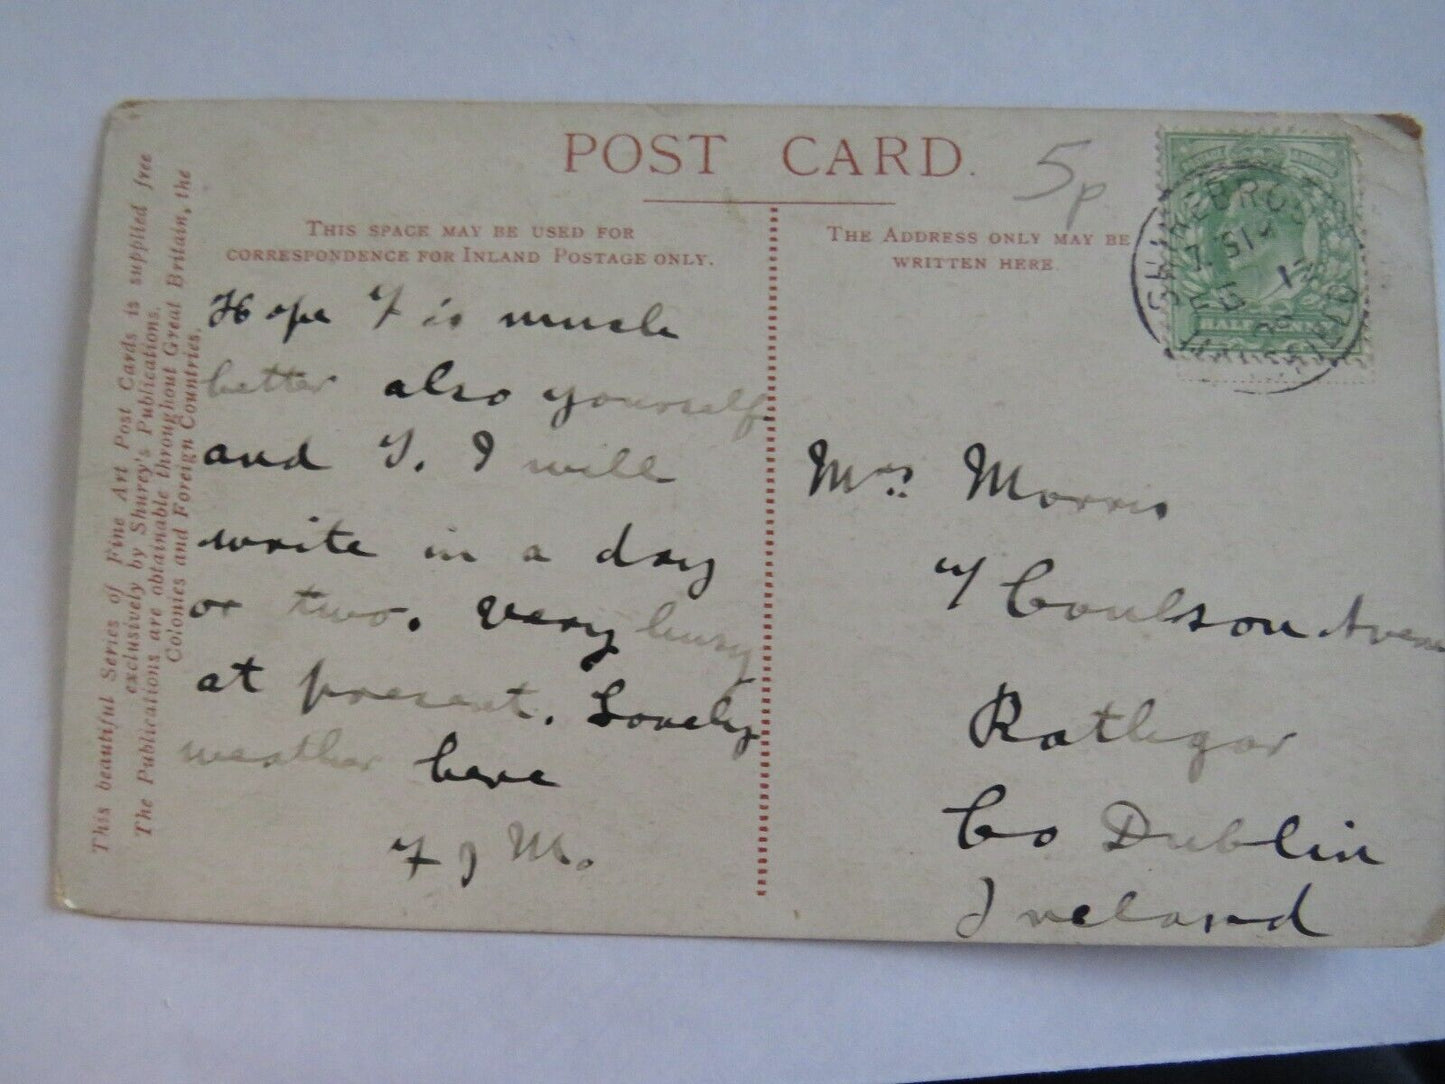 POST CARD.
5p
THIS SPACE MAY BE USED FOR
CORRESPONDENCE FOR INLAND POSTAGE ONLY.
THE ADDRESS ONLY MAY BE
WRITTEN HERE.
This beautiful Series of Fine Art Post Cards is supplied free
exclusively by Shurey's Publications.
The Publications are obtainable throughout Great Britain, the
Colonies and Foreign Countries.
Hope F is much
better also yourself
and I will
write in a day
or two. Very busy
at present. Lovely
weather here
F J M.
Mrs Morris
Coulson Avenue
Rathgar
Co Dublin
Ireland
HALF PENNY